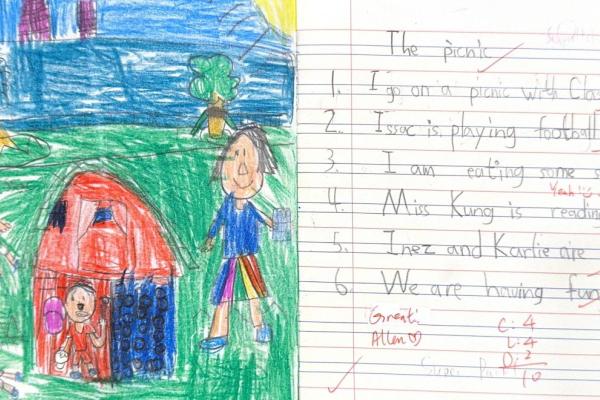 The picnic
1. I go on a picnic with Clas
2. Issac is playing football
3. I am eating some s
Yeah!
4. Miss Kung is reading
5. Inez and Karlie are
6. We are having fun
Great!
Allen
C: 4
L: 4
O: 2
10